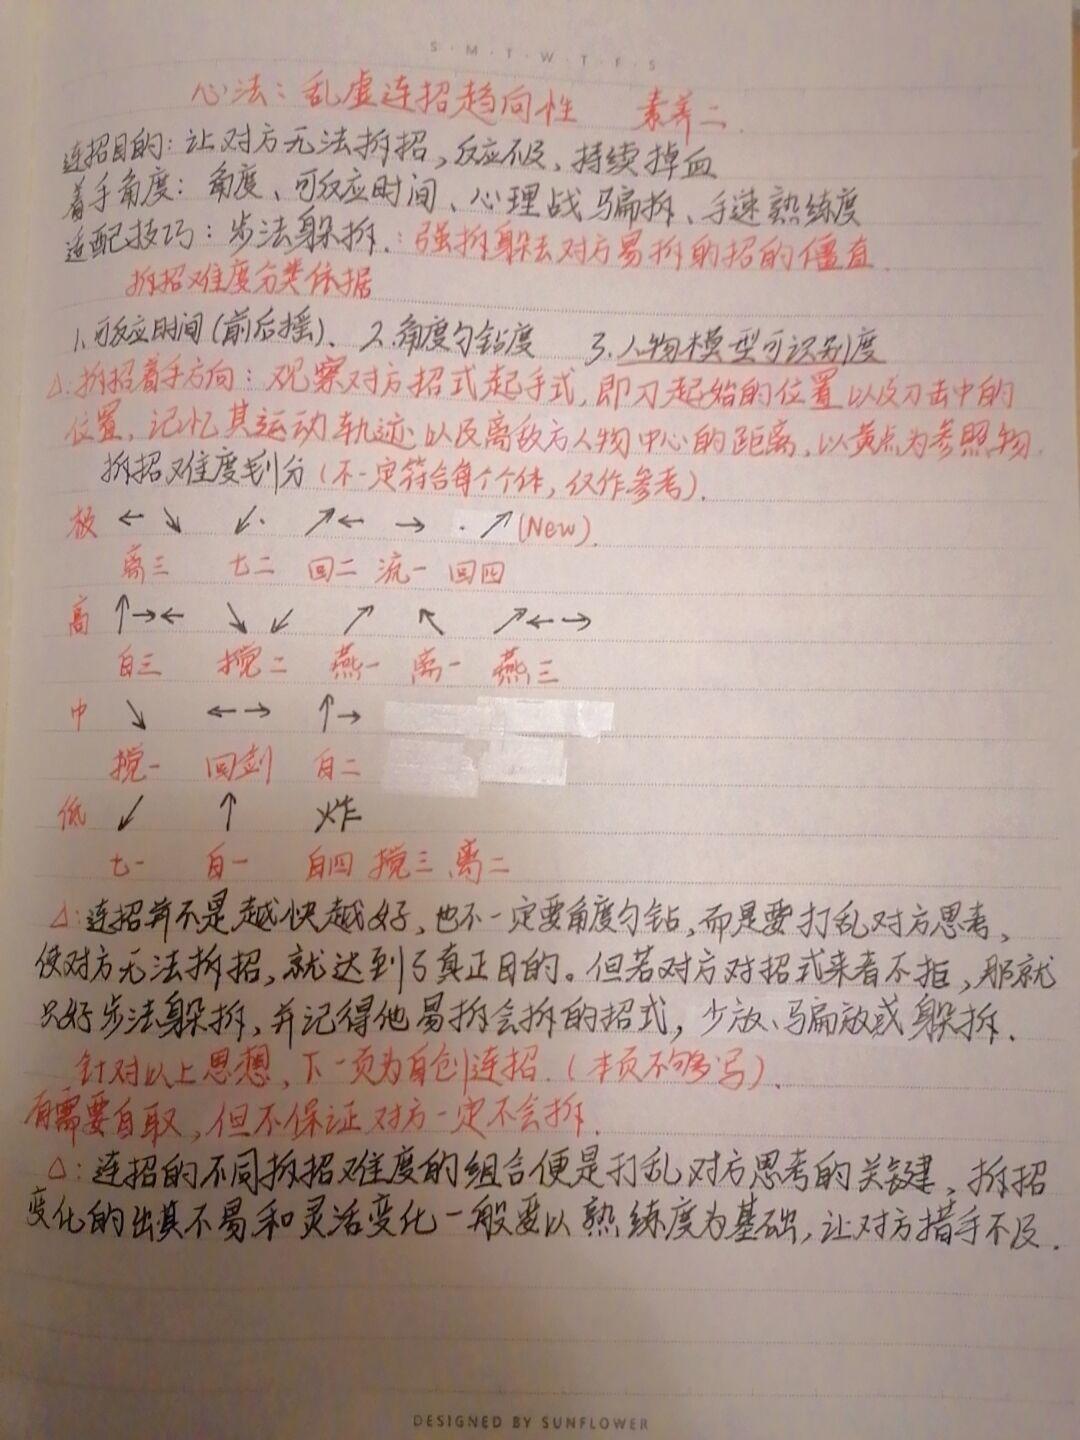 S·M·T·W·T·F·S
心法：乱虚连招趋向性 素养二.
连招目的：让对方无法拆招、反应不及、持续掉血
着手角度：角度、可反应时间、心理战骗拆、手速熟练度
适配技巧：步法躲拆.：强拆躲去对方易拆的招的僵直.
拆招难度分类依据
1.可反应时间(前后摇)、 2.角度刁钻度 3.人物模型可识别度
△:拆招着手方向：观察对方招式起手式,即刀起始的位置以及刀击中的
位置,记忆其运动轨迹以及离敌方人物中心的距离,以黄点为参照物.
拆招难度划分(不一定符合每个个体,仅作参考).
极 ←↘ ↙· ↗← → ·↗(New).
离三 七二 回二 流一 回四
高 ↑→← ↘↙ ↗ ↖ ↗←→
白三 搅二 燕一 离一 燕三
中 ↘ ←→ ↑→
搅一 回剑 白二
低 ↙ ↑ 炸
七一 白一 白四 搅三 离二
△:连招并不是越快越好,也不一定要角度刁钻,而是要打乱对方思考,
使对方无法拆招,就达到了真正目的。但若对方对招式来者不拒,那就
只好步法躲拆,并记得他易拆会拆的招式,少放、骗放或躲拆.
针对以上思想,下一页为自创连招.(本页不够写).
有需要自取,但不保证对方一定不会拆.
△:连招的不同拆招难度的组合便是打乱对方思考的关键、拆招
变化的出其不易和灵活变化一般要以熟练度为基础,让对方措手不及.
DESIGNED BY SUNFLOWER